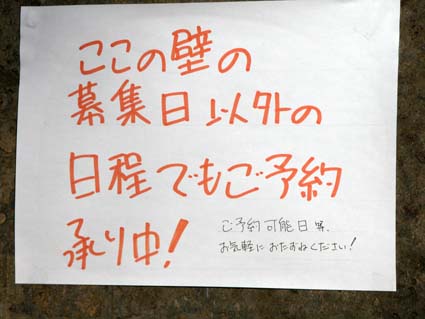 ここの壁の
募集日以外の
日程でもご予約
承り中!
ご予約可能日等、
お気軽におたずねください!